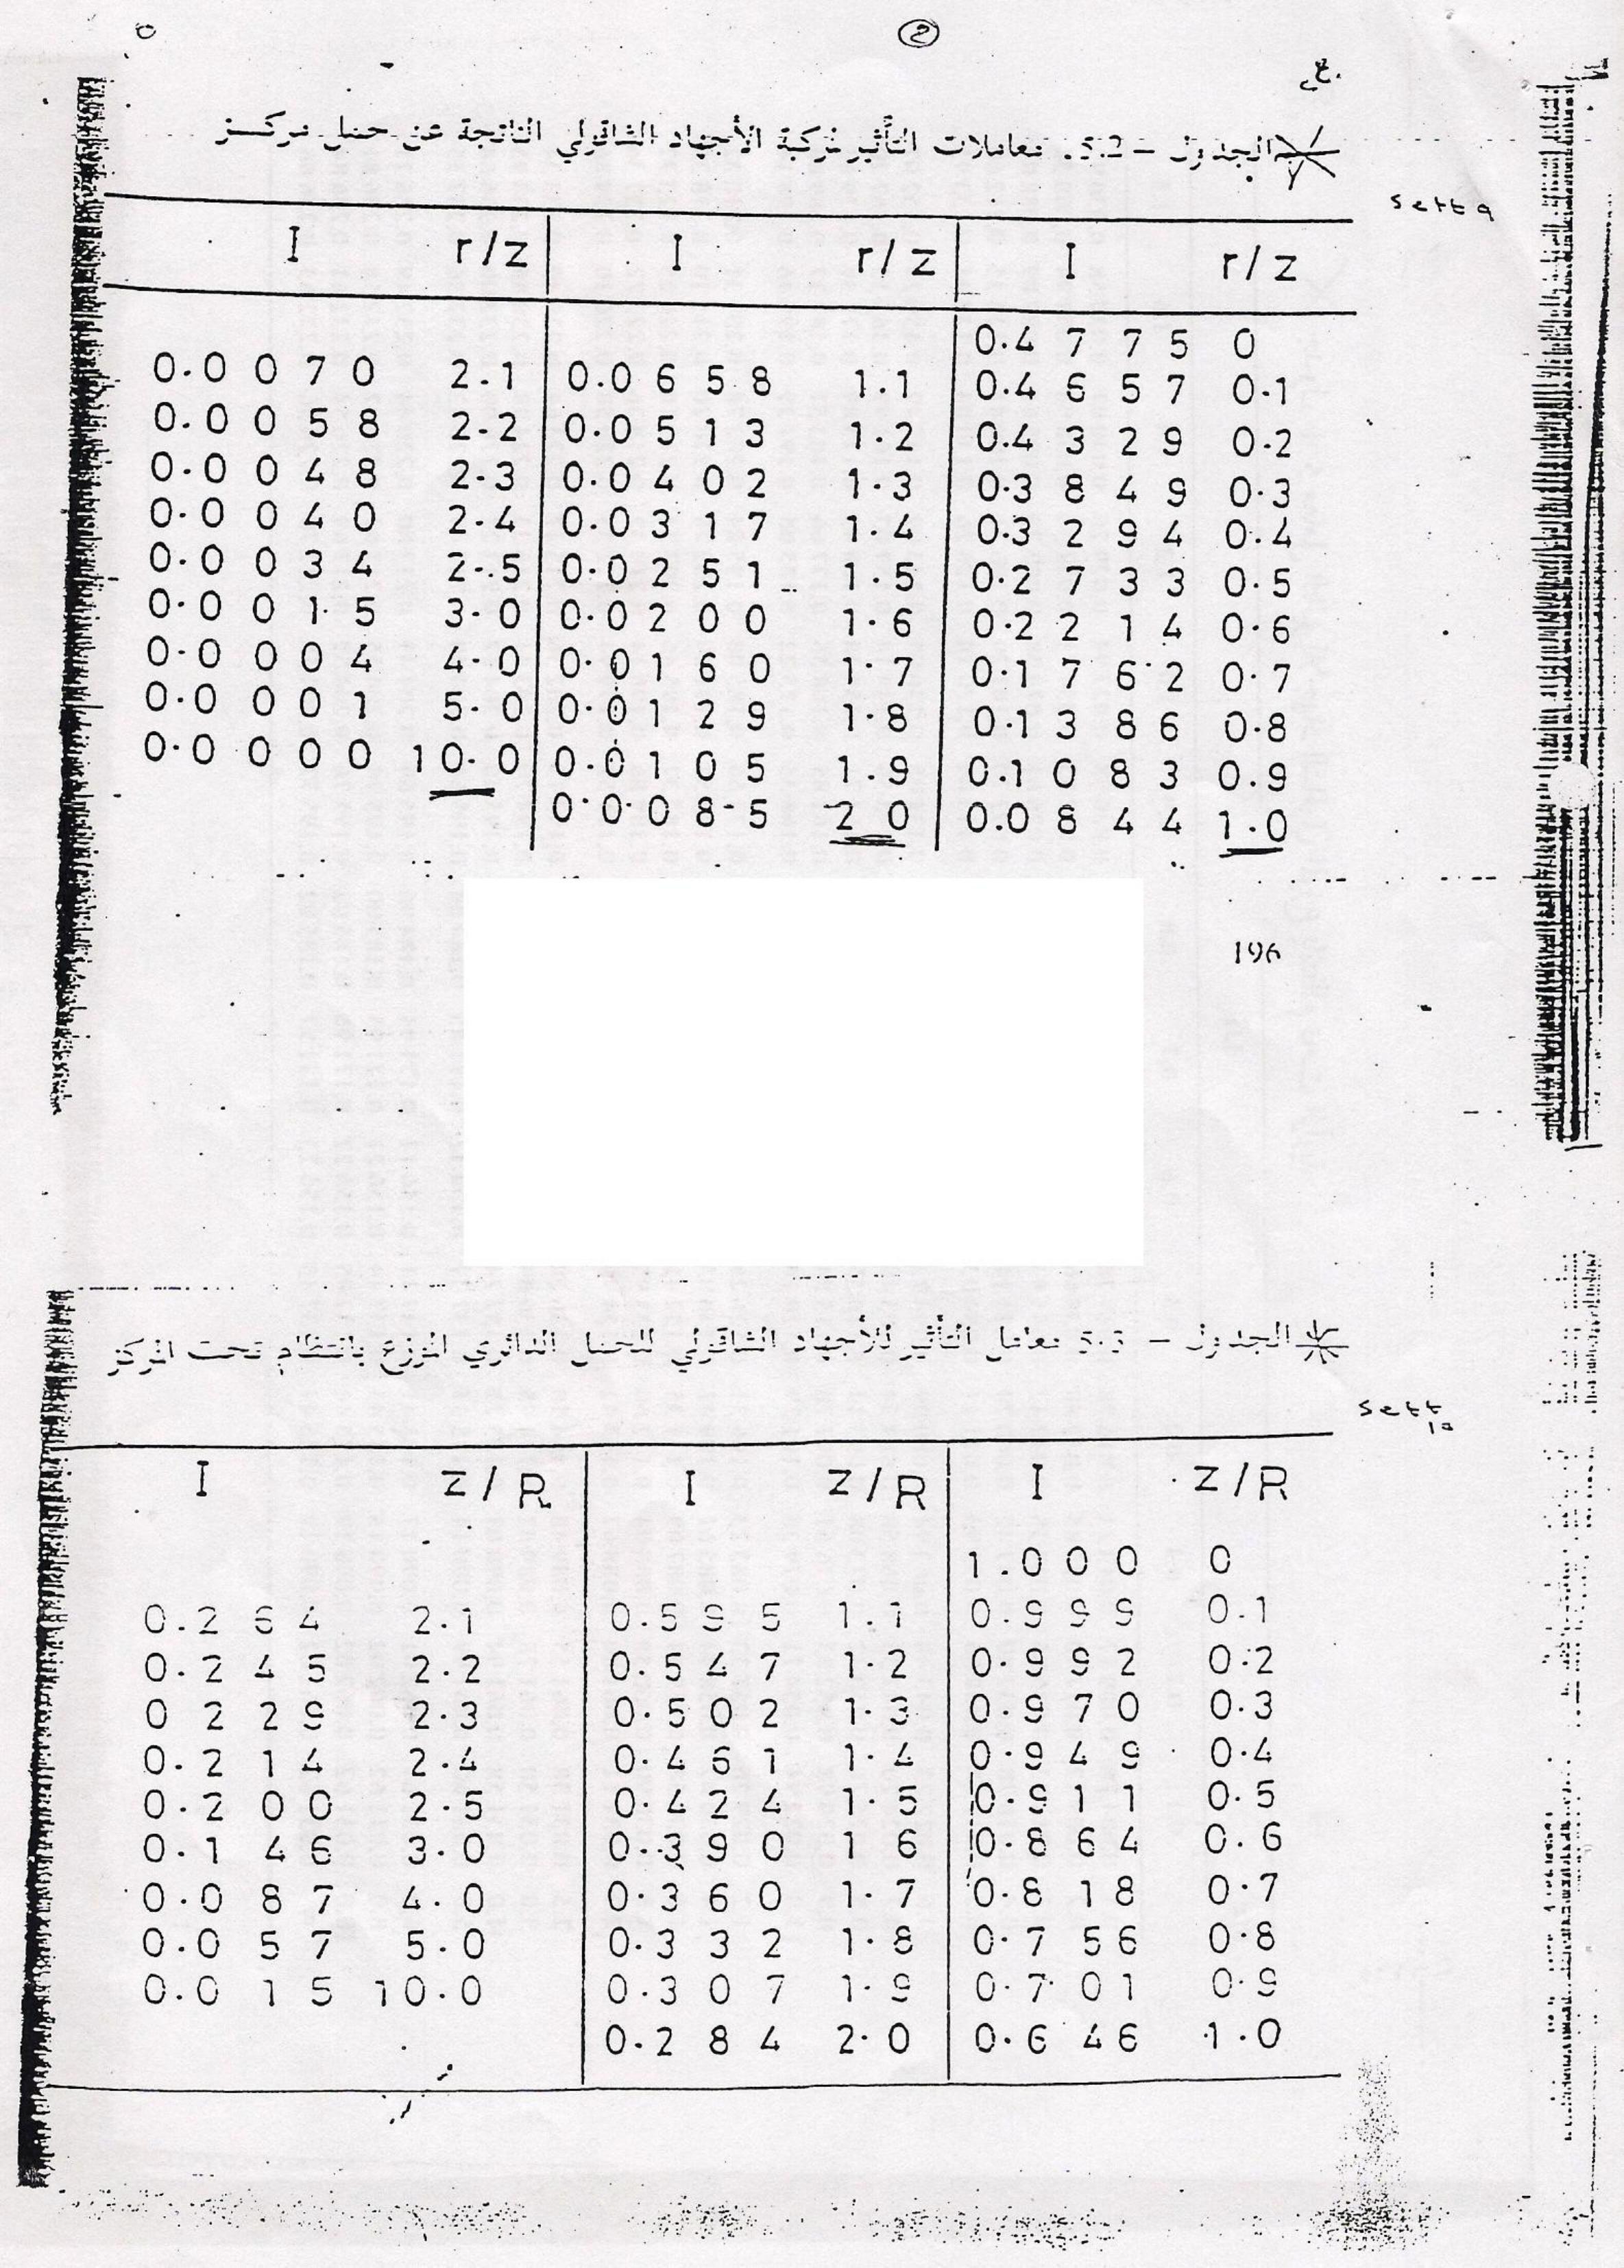 2
الجدول - 5.2. معاملات التأثير لمركبة الأجهاد الشاقولي الناتجة عن حمل مركز
sett 9
I r/z I r/z I r/z
0.4775 0
0.0070 2.1 0.0658 1.1 0.4657 0.1
0.0058 2.2 0.0513 1.2 0.4329 0.2
0.0048 2.3 0.0402 1.3 0.3849 0.3
0.0040 2.4 0.0317 1.4 0.3294 0.4
0.0034 2.5 0.0251 1.5 0.2733 0.5
0.0015 3.0 0.0200 1.6 0.2214 0.6
0.0004 4.0 0.0160 1.7 0.1762 0.7
0.0001 5.0 0.0129 1.8 0.1386 0.8
0.0000 10.0 0.0105 1.9 0.1083 0.9
0.0085 2 0 0.0844 1.0
196
الجدول - 5.5 معامل التأثير للأجهاد الشاقولي للحمل الدائري الموزع بانتظام تحت المركز
sett 10
I Z/R I Z/R I Z/R
1.000 0
0.264 2.1 0.595 1.1 0.999 0.1
0.245 2.2 0.547 1.2 0.992 0.2
0 229 2.3 0.502 1.3 0.970 0.3
0.214 2.4 0.461 1.4 0.949 0.4
0.200 2.5 0.424 1.5 0.911 0.5
0.146 3.0 0.390 1 6 0.864 0.6
0.087 4.0 0.360 1.7 0.818 0.7
0.057 5.0 0.332 1.8 0.756 0.8
0.015 10.0 0.307 1.9 0.701 0.9
0.284 2.0 0.646 1.0